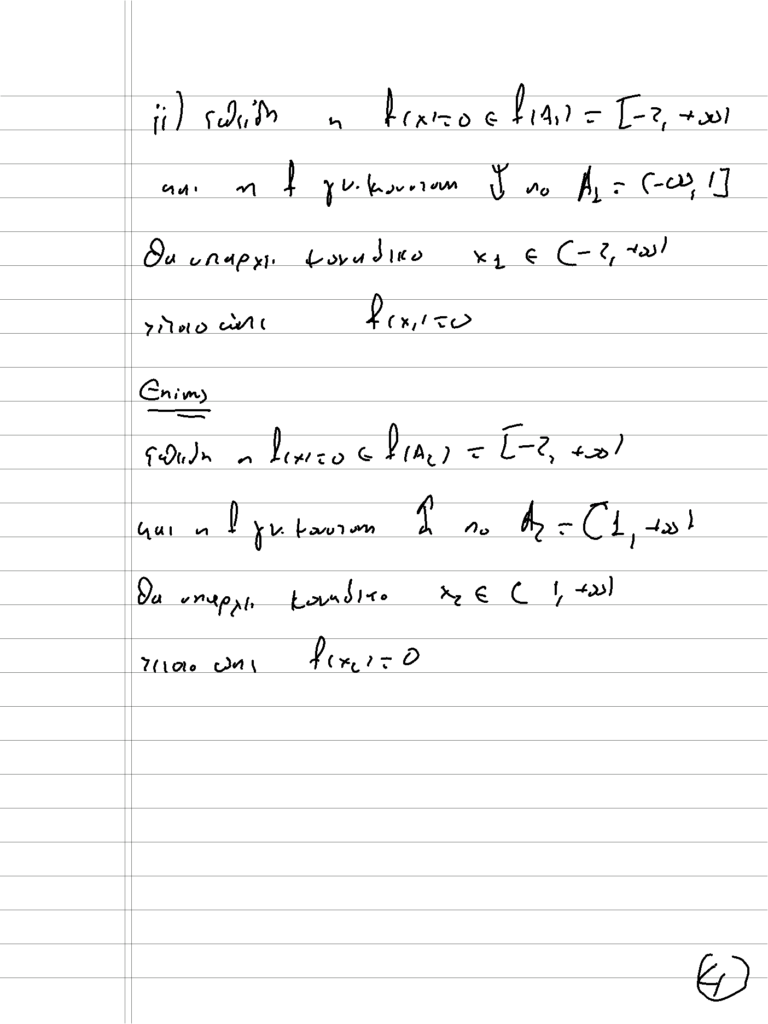 ii) επειδή η f(x)=0 ∈ f(A₁) = [-2, +∞)
και η f γν. μονοτονη ↓ στο A₁ = (-∞, 1]
θα υπαρχει μοναδικο x₁ ∈ (-2, +∞)
τετοιο ώστε f(x₁)=0
Επισης
επειδη η f(x)=0 ∈ f(A₂) = [-2, +∞)
και η f γν. μονοτονη ↑ στο A₂ = [1, +∞)
θα υπαρχει μοναδικο x₂ ∈ (1, +∞)
τετοιο ώστε f(x₂)=0
4